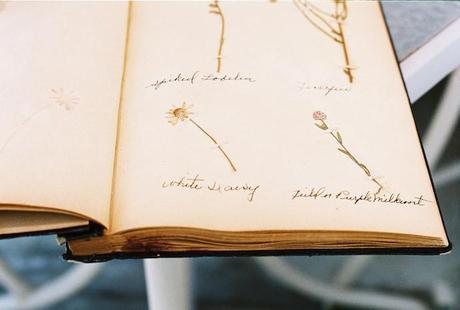 Spiked Lobelia
White Daisy
Field or Purple Milkwort